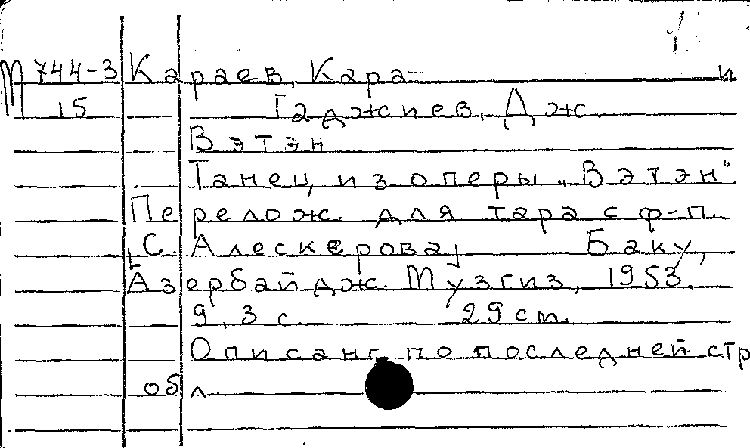 1.
М 744-3 Караев, Кара и
15 Гаджиев, Дж
Вэтэн
Танец из оперы „Вэтэн"
Перелож. для тара с ф-п.
[С. Алескерова] Баку,
Азербайдж. Музгиз, 1953.
9, 3 с. 29 см.
Описано по последней стр
обл